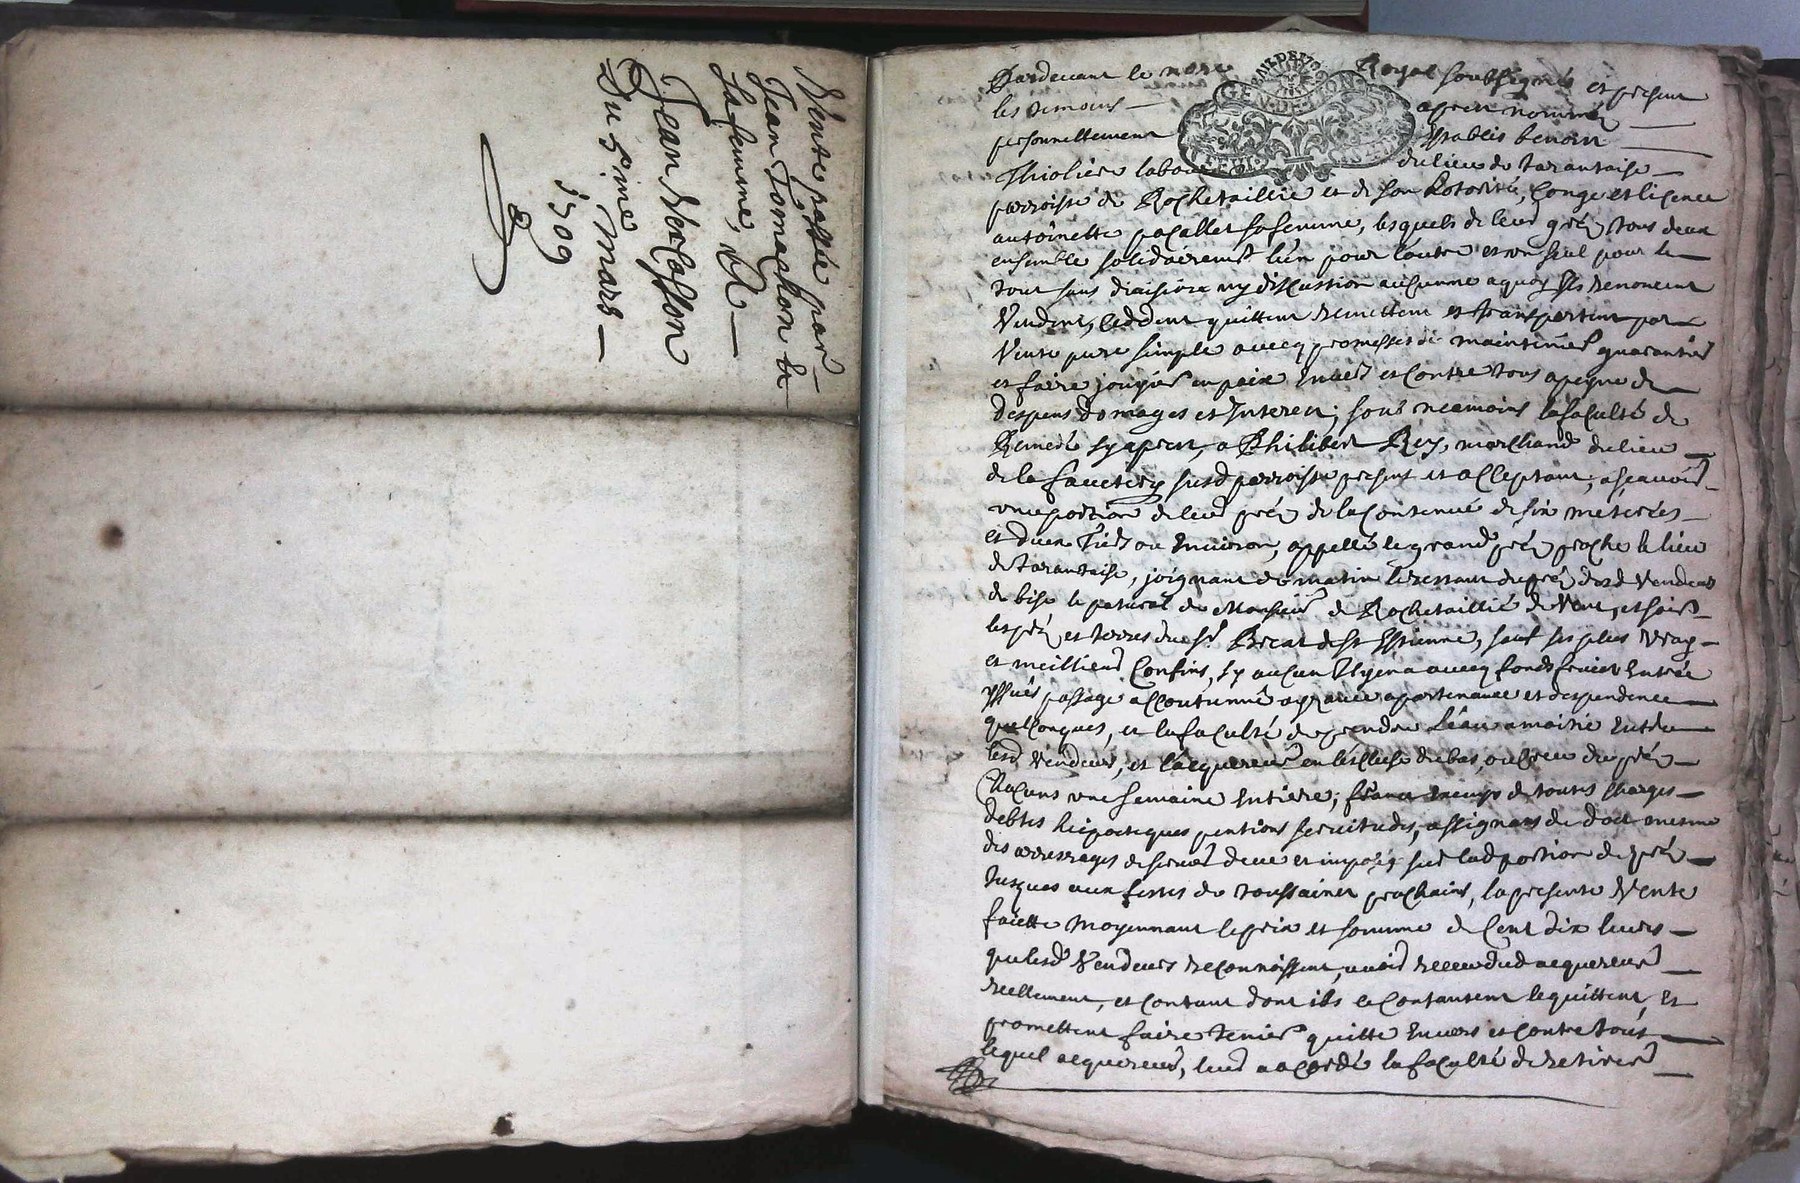 Vente passée par
Jean Fomephon &
Sa femme, A
Jean
Du 5me mars
1709
Pardevant le nore Royal soubsigné et presents
les temoins apres nommés
personnellement establis benoist
Thiolier labour du lieu de tarantaise
parroisse de Rochetaillie et de son hotorité, Conge et licence
antoinette paCallet sa femme, lesquels de leur gré tous deux
ensemble solidairemt lun pour lautre et un seul pour le
tout sans diuision ny discussion auCunne a quoy ils renoncent
Vendent, Ceddent quittent remettent et transportent par
Vente pure simple auecq promesses de maintenir guarantir
et faire jouyir en paix enuers et Contre tous a peyne de
despens domages et Interest; sous neamoins la faCulté de
Remeré sy apres, a Philibert Rey, marchand du lieu
de la susd parroisse present et acceptant, asçauoir
vne portion de leur pré de la Contenue de six meterées
et dun Tiers ou enuiron, appellé le grand pré proche le lieu
de tarantaise, joignant de matin le restant du pré desd Vendeurs
de bise le patural de Monsieur de Rochetaillié de Vent, et soir
les pré et terres du sr. de St Estienne, sauf ses plus Vrays
et meillieurs Confins, sy auCun Il y en a auecq fonds fruict entrée
yssues passage accoutumé apartenance et despendence
quelConques, et la faCulté de prendre L'eau a moitié entre
lesd Vendeurs, et l'acquereur en l'escluse du bas, ou Creu du pré
ChaCuns une semaine entiere; de toutes charges
debtes hipotteques pentions seruitudes, assignaos de dot mesme
des arrerages de seruis deus et imposés sur lad portion de pré
Jusques aux festes de toussaincts prochains, la presente Vente
faiette Moyennant le prix et somme de Cent dix liures
que lesd Vendeurs reConnoissent auoir receu dud acquereur
reellement, et Contant dont ils se Contantent le quittent, et
promettent faire tenir quitte enuers et Contre tous
lequel acquereur, leur a acordé la faCulté de retirer